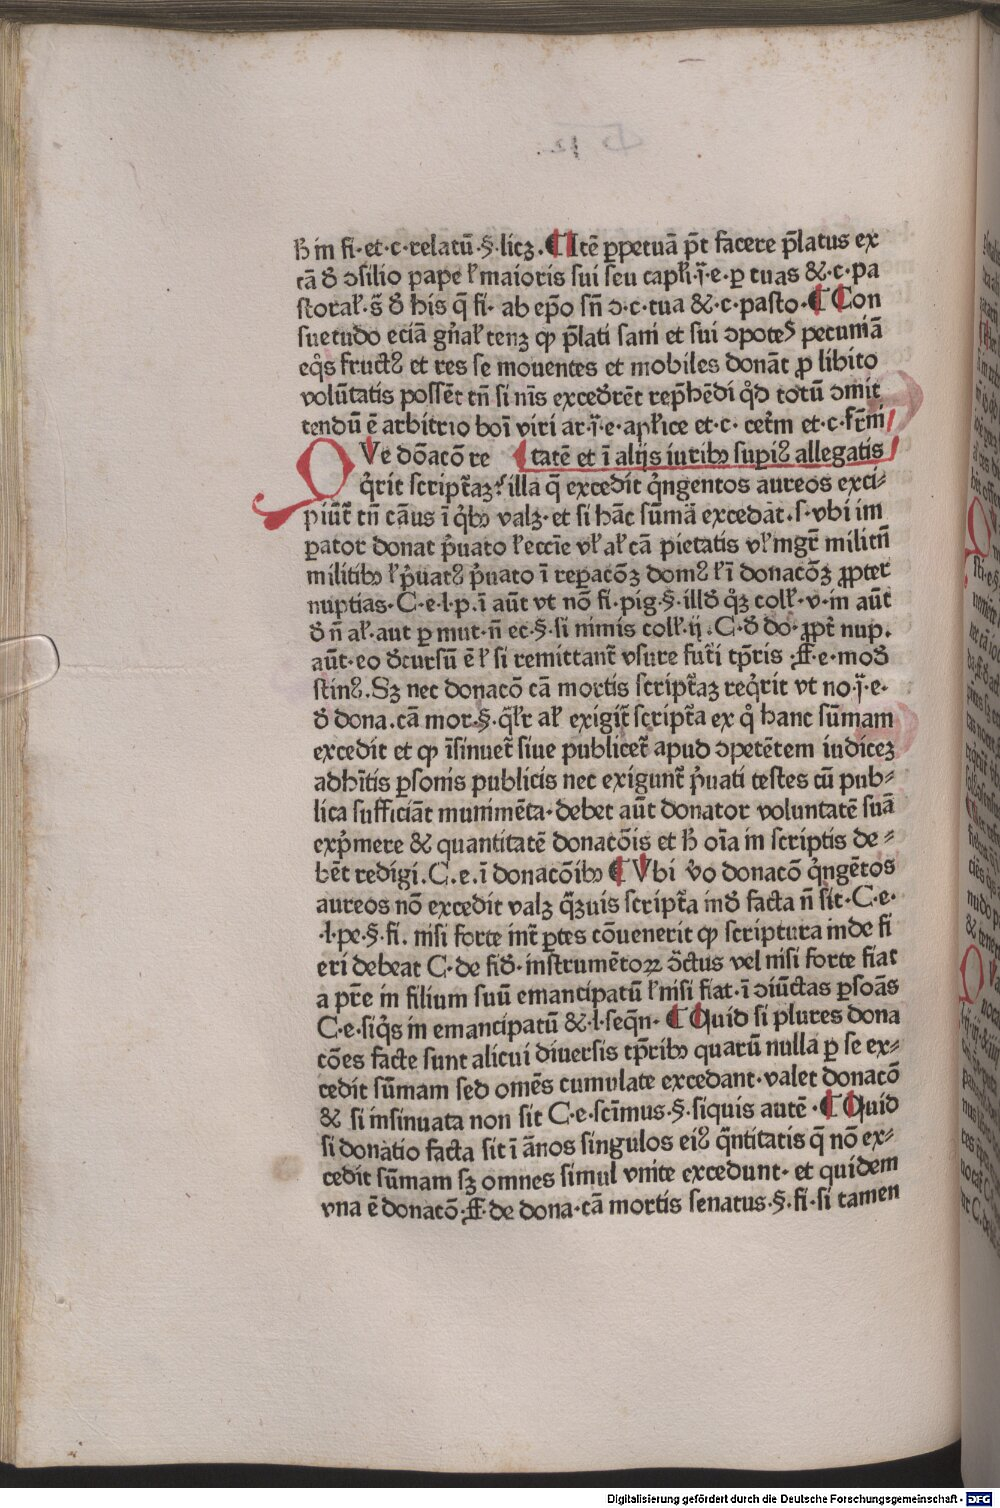 ħ in fi·et·c·relatū·§·licꝫ·¶Itē ꝑpetuā p̄t facere p̄latus ex
cā ꝺ̄ ↄsilio pape ł maioris sui seu capłi·ī·e·ꝑ tuas &·c·pa
storał·s̄ ꝺ̄ his q̄ fi· ab ep̄o sn̄ ↄ·c·tua &·c·pasto·¶Con
suetudo eciā gn̄ał tenꝫ ꝙ p̄lati sani et sui ↄpotes pecuniā
eqͥs fructꝰ et res se mouentes et mobiles donāt ꝓ libito
volūtatis possēt tn̄ si nīs exceꝺ̄rēt rep̄hēdi qͦd totū ↄmit
tendū ē arbitrio boī viri ar·ī·e·apłice et·c· cet̄m et·c·fr̄m
QVe dōacō re tatē et ī alijs iuribꝫ supiꝰ allegatis
qͥrit script̄aꝫ? illa q̄ excedit qͥngentos aureos exci⸗
piūt̄ tn̄ cāus ī qͥbꝫ valꝫ·et si hāc sūmā excedat·s·vbi im
ꝑator donat pͥuato ł eccīe vł ał cā pietatis vł mgr̄ militū
militibꝫ ł pͥuatꝰ pͥuato ī reꝑacōꝫ domꝰ ł ī donacōꝫ ꝓpter
nuptias·C·e·l·p·ī aūt vt nō fi·pig·§·illꝺ̄ qͥꝫ coll·v·in aūt
ꝺ̄ n̄ ał·aut ꝑ mut·n̄ ec·§·si nimis coll·ij·C·ꝺ̄ do·ꝓpt̄ nup.
aūt·eo ꝺ̄cursū ē ł si remittant̄ vsure fut̄i tp̄ris·ff·e·moꝺ̄
stinꝰ.Sꝫ nec donacō cā mortis script̄aꝫ reqͥrit vt no·ī·e·
ꝺ̄ dona.cā mor·§·qͣłr ał exigit̄ script̄a ex qͦ hanc sūmam
excedit et ꝙ īsinuet̄ siue publicet̄ apud ↄpetētem iudiceꝫ
adhītis ꝑsonis publicis nec exigunt̄ pͥuati testes cū pub⸗
lica sufficiāt munimēta·debet aūt donator voluntatē suā
expͥmere & quantitatē donacōis et ħ oīa in scriptis de⸗
bēt redigi.C.e.ī donacōibꝫ ¶Vbi v̊o donacō qͥngētos
aureos nō excedit valꝫ qͣꝫuis script̄a inꝺ̄ facta n̄ sit·C·e·
·l·pe·§·fi. nisi forte int̄ ꝑtes cōuenerit ꝙ scriptura inde fi
eri debeat C·de fiꝺ̄·instrumētoꝝ ↄ̄ctus vel nisi forte fiat
a pr̄e in filium suū emancipatū ł nisi fiat·ī ↄiūctas ꝑsoās
C·e·siqͥs in emancipatū &·l·seqn̄·¶Quid si plures dona
cōes facte sunt alicui diuersis tp̄ribꝫ quarū nulla ꝑ se ex⸗
cedit sūmam sed omēs cumulate excedant·valet donacō
& si insinuata non sit C·e·scīmus·§·siquis autē·¶Quid
si donatio facta sit ī ānos singulos eiꝰ qͣntitatis q̄ nō ex⸗
cedit sūmam sꝫ omnes simul vnite excedunt· et quidem
vna ē donacō·ff·de dona·cā mortis senatus·§·fi·si tamen
Digitalisierung gefördert durch die Deutsche Forschungsgemeinschaft - DFG